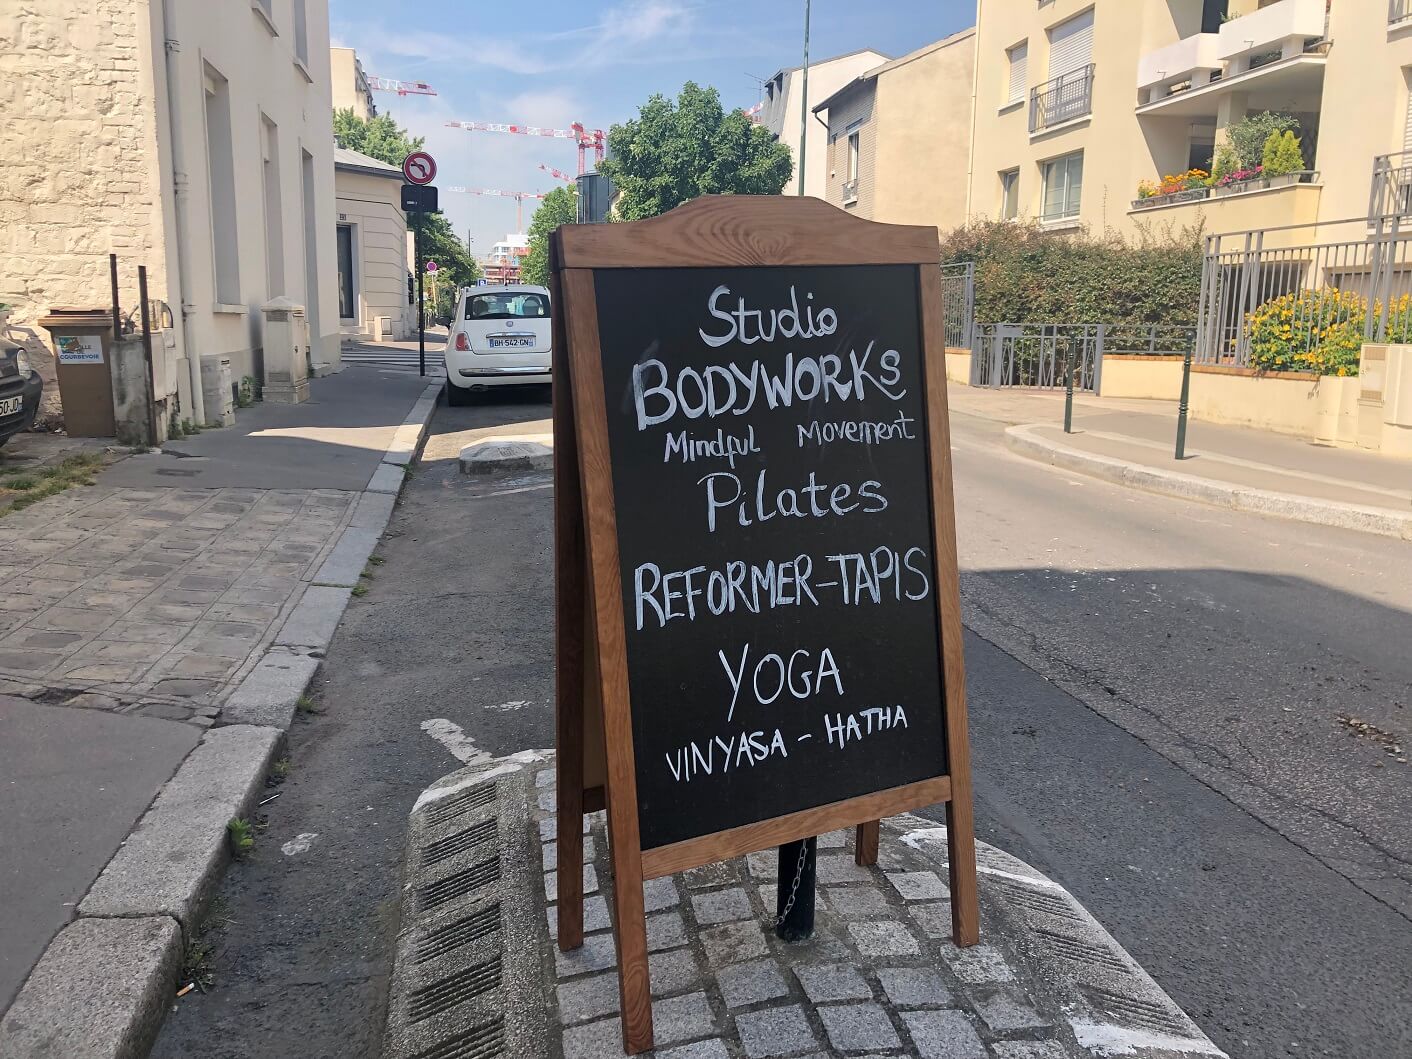 Studio
BODYWORKS
Mindful Movement
Pilates
REFORMER-TAPIS
YOGA
VINYASA - HATHA
BH-542-GN
VILLE
DE
COURBEVOIE
50-JD